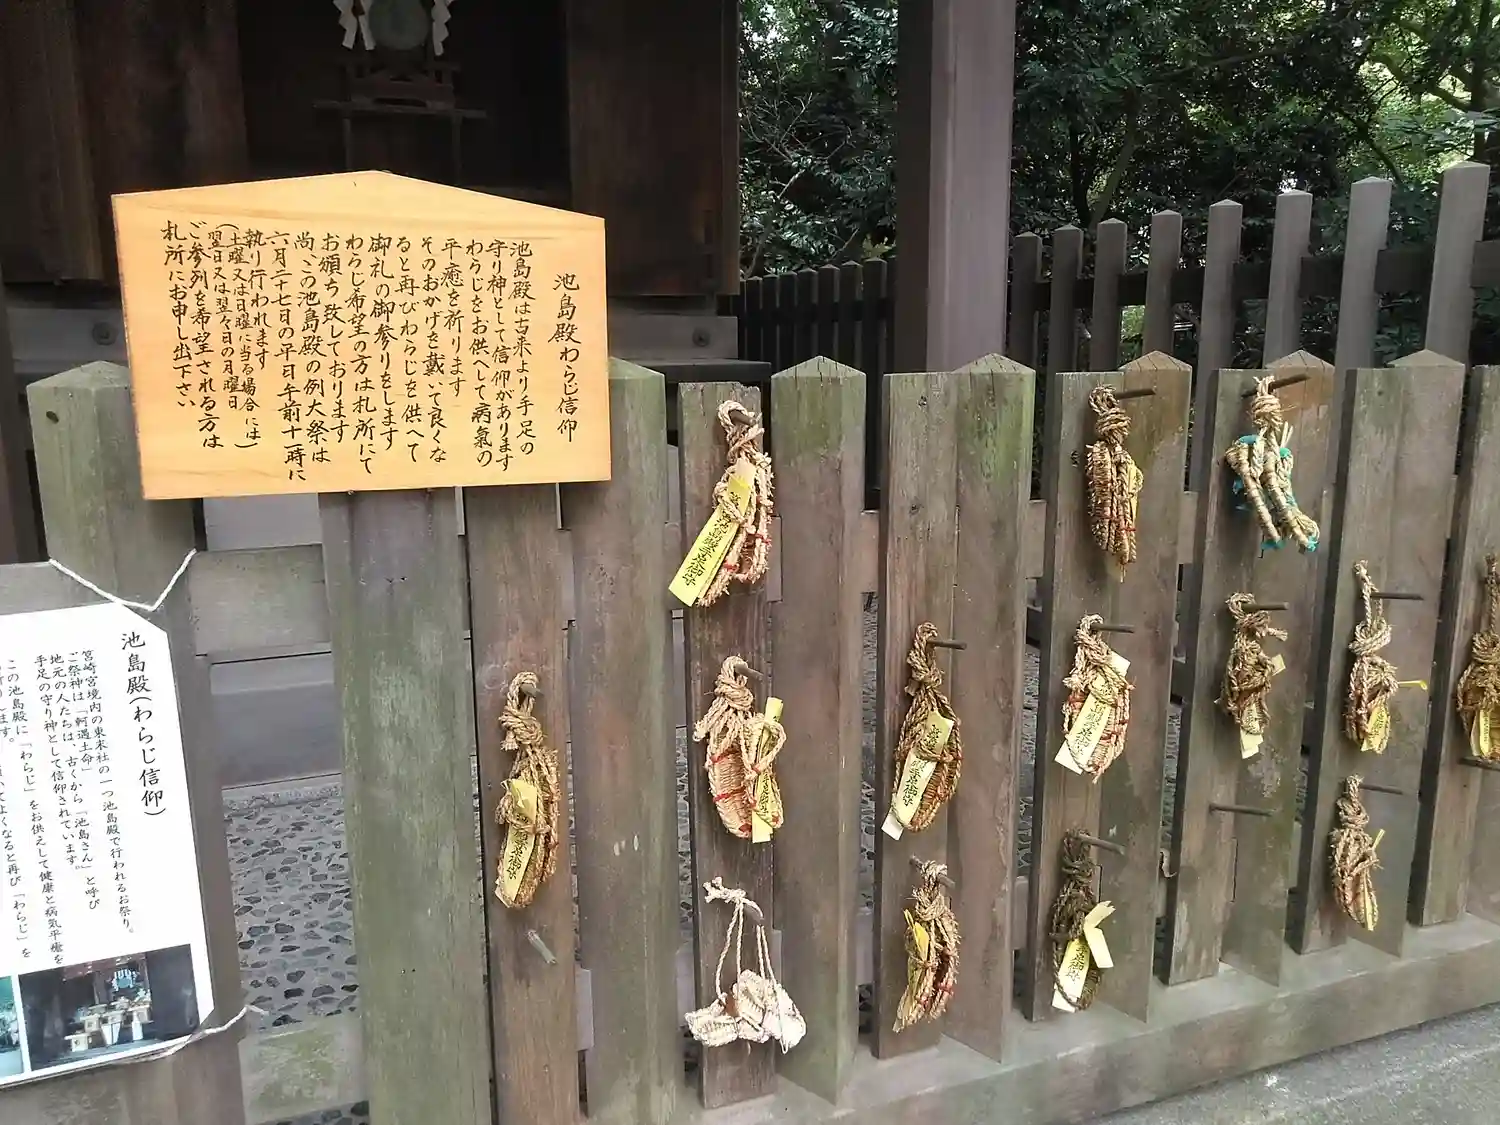 池島殿わらじ信仰
池島殿は古来より手足の
守り神として信仰があります
わらじをお供へして病氣の
平癒を祈ります
そのおかげを戴いて良くな
ると再びわらじを供へて
御札の御参りをします
わらじ希望の方は札所にて
お頒ち致しております
尚、この池島殿の例大祭は
六月二十七日の平日午前十一時に
執り行われます
(土曜又は日曜に当る場合には
翌日又は翌々日の月曜日)
ご参列を希望される方は
札所にお申し出下さい
池島殿(わらじ信仰)
筥崎宮境内の東末社の一つ池島殿で行われるお祭り。
ご祭神は「軻遇土命」
地元の人たちは、古くから「池島さん」と呼び
手足の守り神として信仰されています。
この池島殿に「わらじ」をお供えして健康と病気平癒を
てよくなると再び「わらじ」を